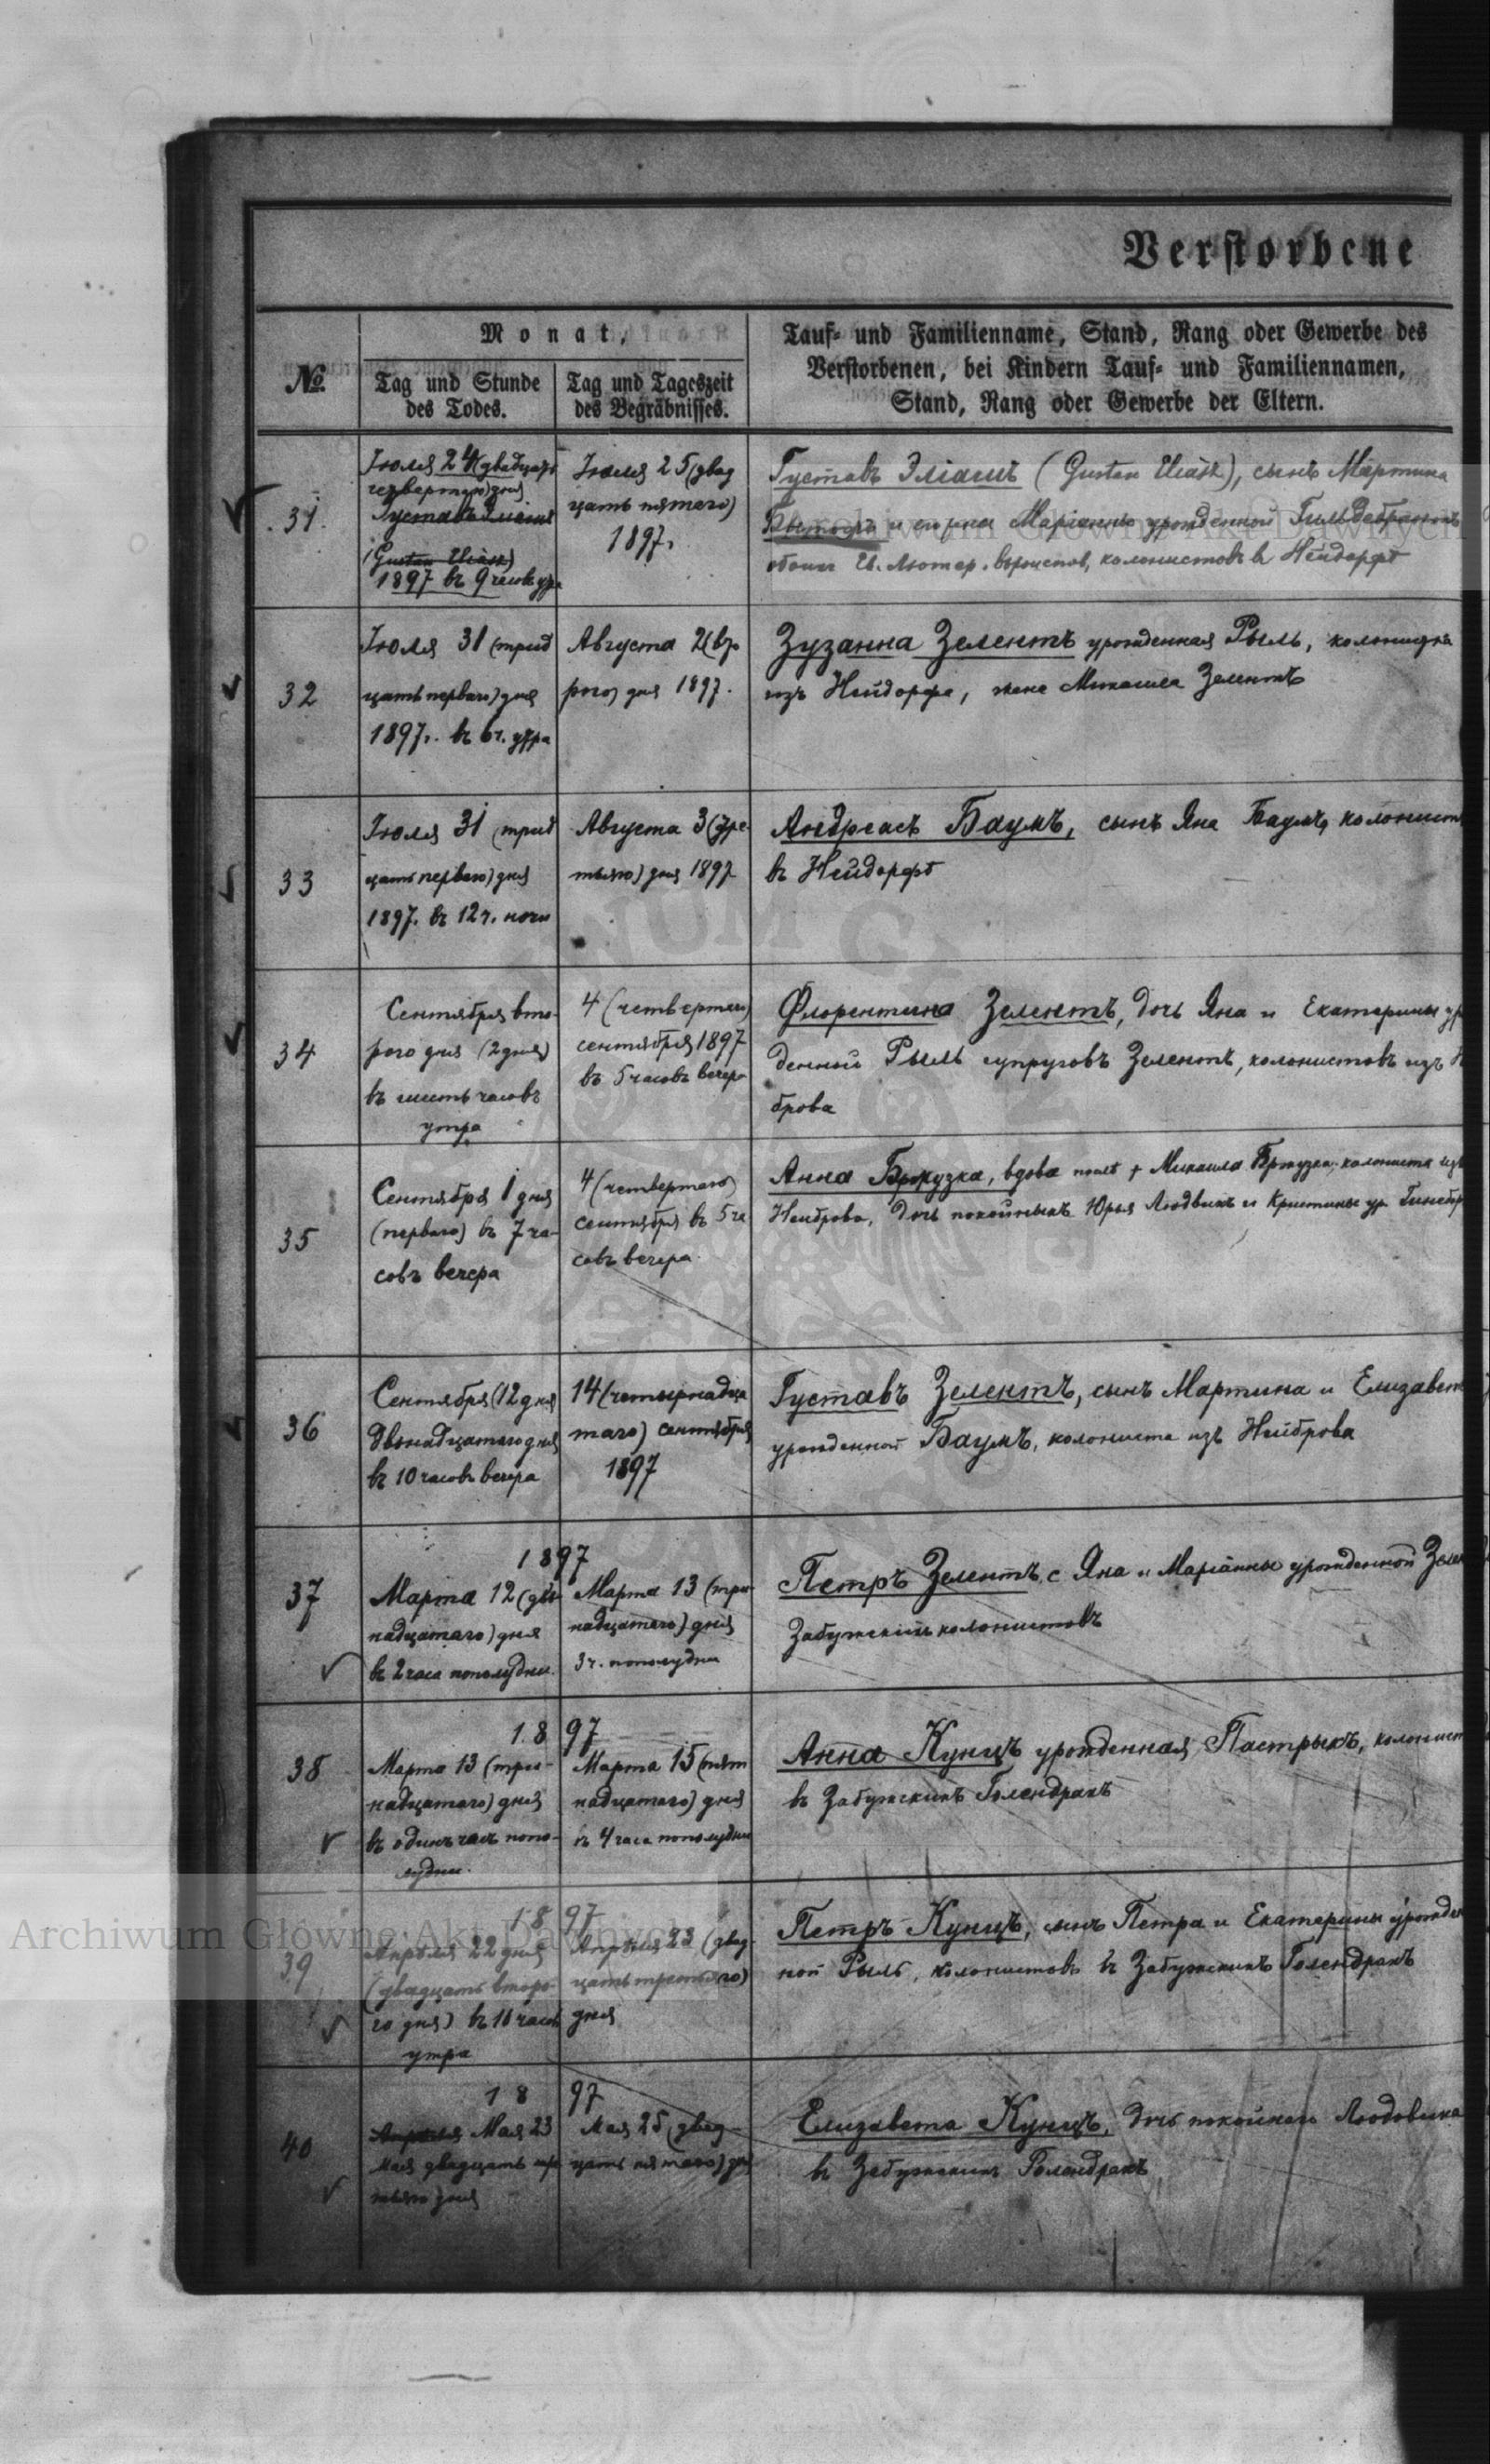 Verstorbene
№
Monat,
Tag und Stunde
des Todes.
Tag und Tageszeit
des Begräbnisses.
Tauf- und Familienname, Stand, Rang oder Gewerbe des
Verstorbenen, bei Kindern Tauf- und Familiennamen,
Stand, Rang oder Gewerbe der Eltern.
31.
Іюля 24 (двадцать
четвертаго) дня
Густавъ Эліашъ
(Gustav Eliasz)
1897 въ 9 часовъ
Іюля 25 (двад
цать пятаго)
1897.
Густавъ Эліашъ (Gustav Eliasz), сынъ Мартина
и Маріанны урожденной Гильдебрантъ
обоихъ Ев. Лютер. колонистовъ в Нейдорфѣ
32
Іюля 31 (трид
цать перваго) дня
1897. въ 6 ч. утра
Августа 2 (вто
рого) дня 1897.
Зузанна Зелентъ урожденная Рыль, колонистка
изъ Нейдорфа, жена Михаила Зелентъ
33
Іюля 31 (трид
цать перваго) дня
1897. въ 12 ч. ночи
Августа 3 (тре
тьяго) дня 1897
Андреасъ Баумъ, сынъ Яна Баумъ, колонист
въ Нейдорфѣ
34
Сентября вто-
рого дня (2 дня)
въ шесть часовъ
утра
4 (четвертаго)
сентября 1897
въ 5 часовъ вечера
Флорентина Зелентъ, дочь Яна и Екатерины ур
денной Рыль супруговъ Зелентъ, колонистовъ изъ Н
брова
35
Сентября 1 дня
(перваго) въ 7 ча-
совъ вечера
4 (четвертаго)
сентября въ 5 ча
совъ вечера.
Анна Бржузка, вдова послѣ + Михаила Бржузка колониста изъ
Нейброва, дочь покойныхъ Юрья Людвикъ и Кристины ур.
36
Сентября (12 дня
двѣнадцатаго дня
въ 10 часовъ вечера
14 (четырнадца
таго) сентября
1897
Густавъ Зелентъ, сынъ Мартина и Елизавет
урожденной Баумъ, колониста изъ Нейброва
37
1897
Марта 12 (двѣ-
надцатаго) дня
въ 2 часа пополудни.
Марта 13 (три-
надцатаго) дня
3 ч. пополудни
Петръ Зелентъ, с Яна и Маріанны урожденной Зелен
Забужскихъ колонистовъ
38
1897
Марта 13 (три-
надцатаго) дня
въ одинъ часъ попо-
лудни.
Марта 15 (пят
надцатаго) дня
въ 4 часа пополудни
Анна Кунцъ урожденная Пастрыкъ, колонист
въ Забужскихъ Голендрахъ
39
1897
Апрѣля 22 дня
(двадцать второ-
го дня) въ 11 часов
утра
Апрѣля 23 (двад-
цать третьяго)
дня
Петръ Кунцъ, сынъ Петра и Екатерины урожден
ной Рыль, колонистовъ въ Забужскихъ Голендрахъ
40
1897
Апрѣля Мая 23
Мая двадцать тре
тьяго дня
Мая 25 (двад-
цать пятаго) дня
Елизавета Кунцъ, дочь покойнаго Людовика
въ Забужскихъ Голендрахъ
Archiwum Główne Akt Dawnych
Archiwum Główne Akt Dawnych